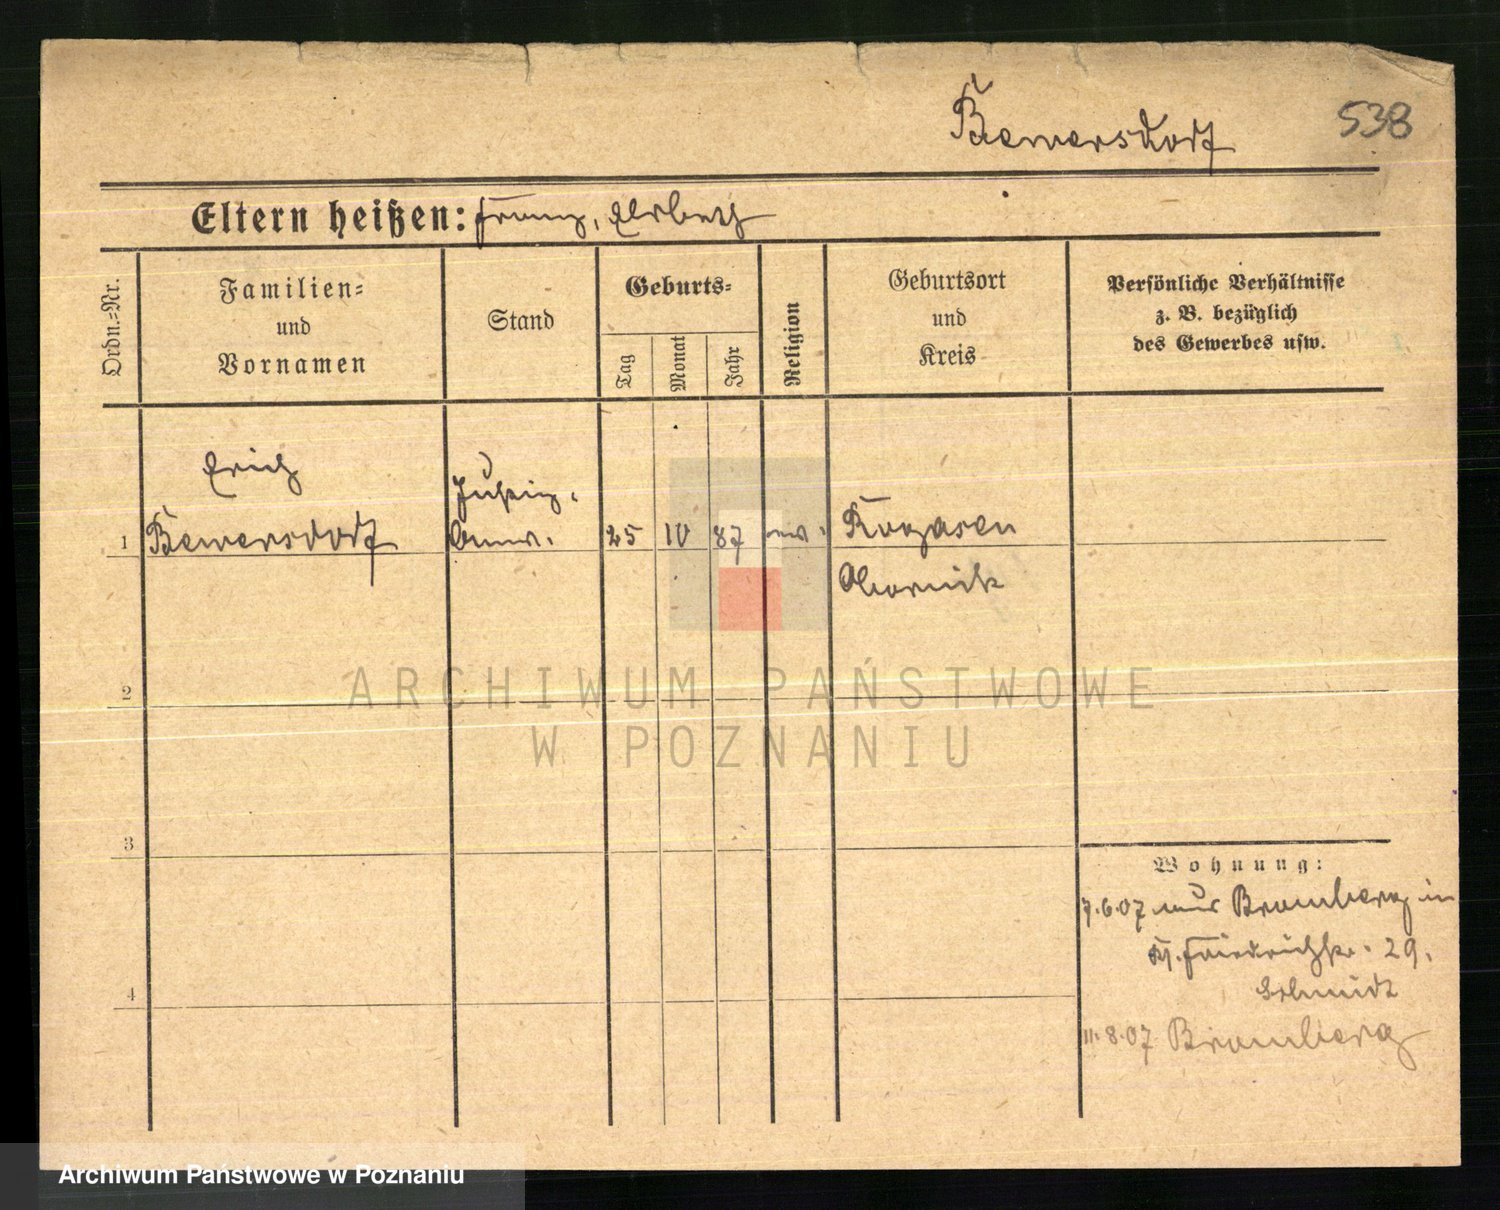 Bemersdorf
538
Eltern heißen: Franz, Elsbeth
Ordn.=Nr.
Familien=
und
Vornamen
Stand
Geburts=
Tag
Monat
Jahr
Religion
Geburtsort
und
Kreis
Persönliche Verhältnisse
z. B. bezüglich
des Gewerbes usw.
Erich
1 Bemersdorf
25 10 87
Rogasen
Obornik
2
3
4
Wohnung:
7.6.07 aus Bromberg in
Friedrichstr. 29.
Schmidt
11.8.07 Bromberg
ARCHIWUM PAŃSTWOWE
W POZNANIU
Archiwum Państwowe w Poznaniu